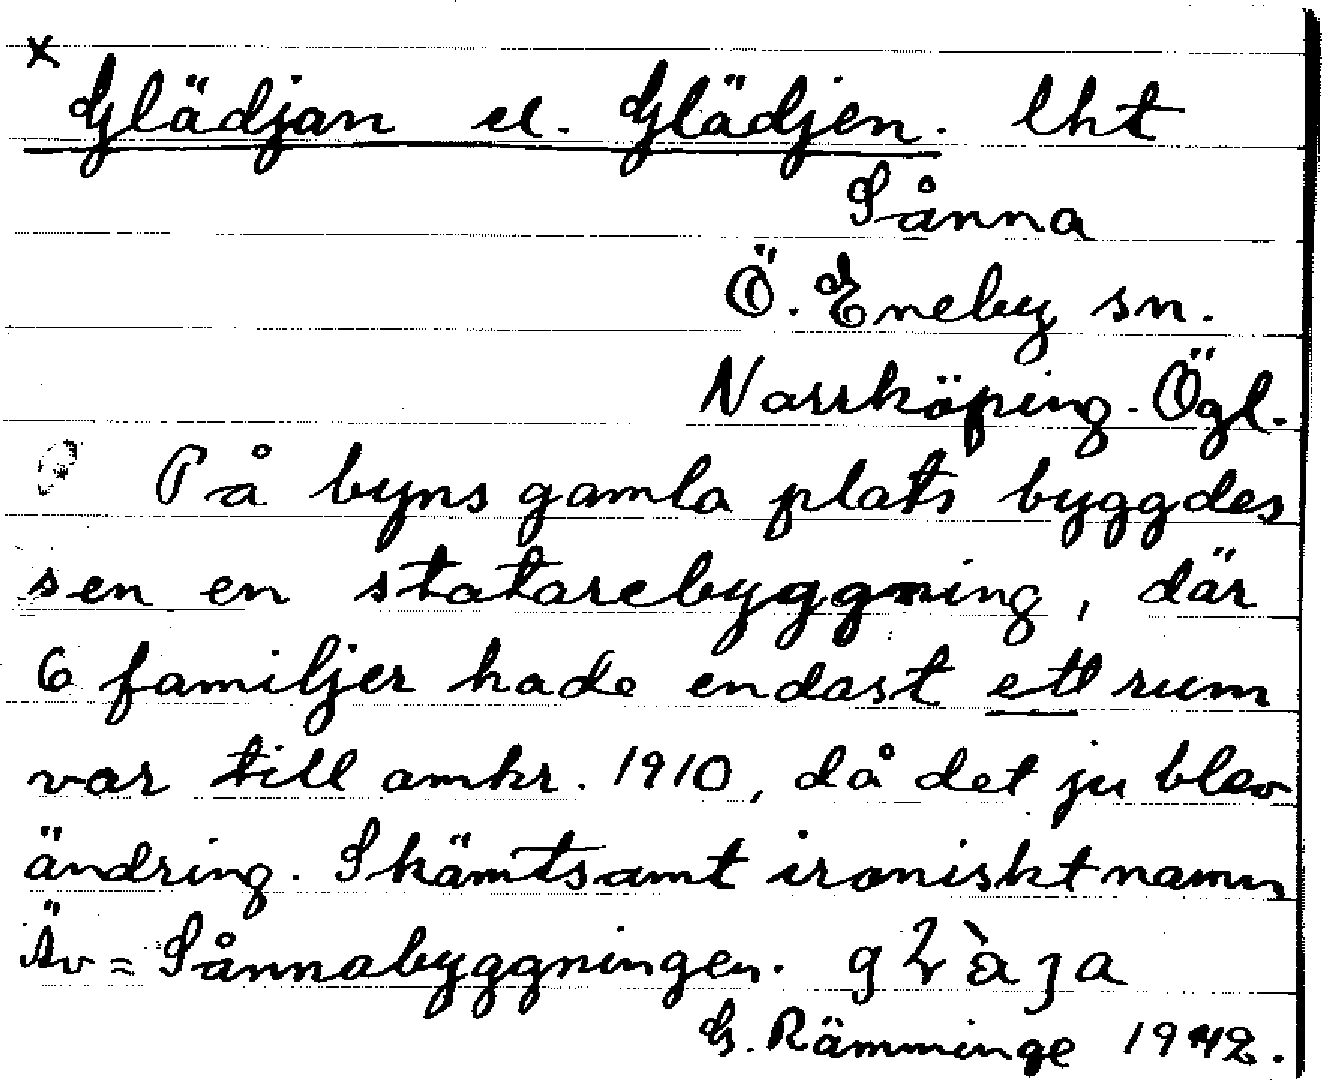 x
Glädjan el. Glädjen. lht
Sånna
Ö. Eneby sn.
Norrköping. Ögl.
På byns gamla plats byggdes
sen en statarebyggning, där
6 familjer hade endast ett rum
var till omkr. 1910, då det ju blev
ändring. Skämtsamt ironiskt namn
Äv = Sånnabyggningen.
G. Rämminge 1942.